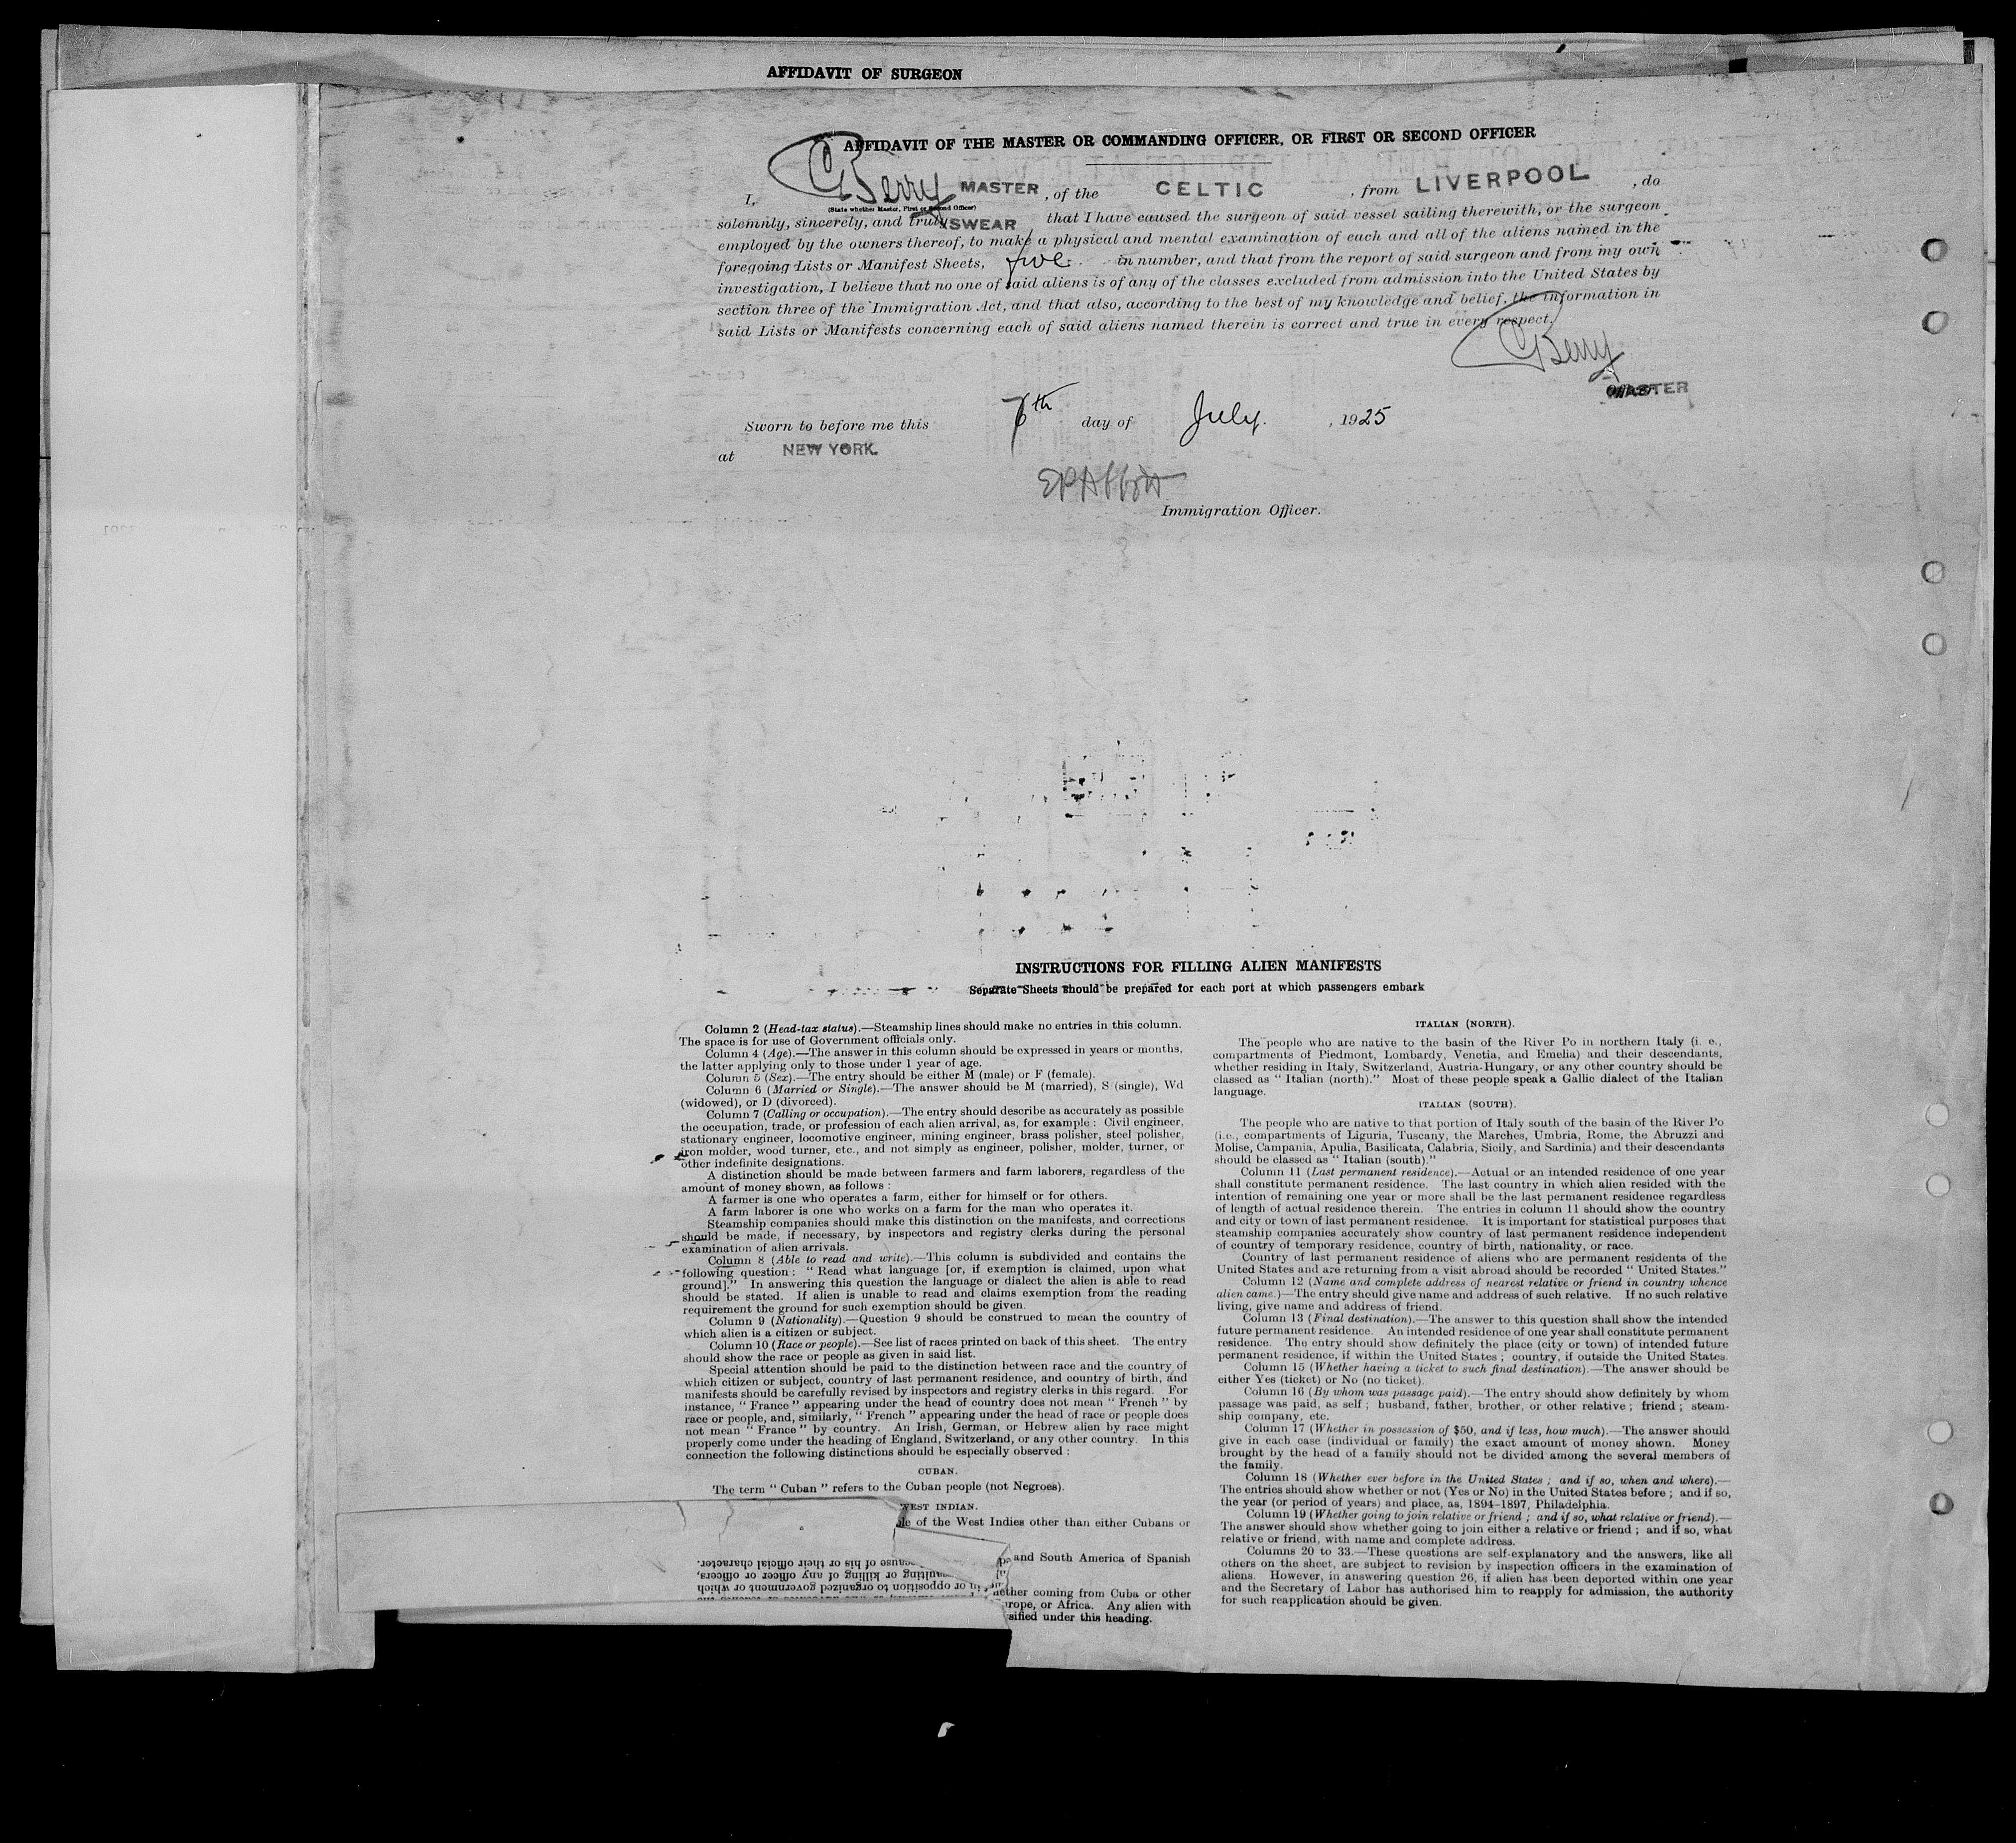 AFFIDAVIT OF SURGEON
AFFIDAVIT OF THE MASTER OR COMMANDING OFFICER, OR FIRST OR SECOND OFFICER
I, CBerry MASTER, of the CELTIC, from LIVERPOOL, do
(State whether Master, First or Second Officer)
solemnly, sincerely, and truly SWEAR that I have caused the surgeon of said vessel sailing therewith, or the surgeon
employed by the owners thereof, to make a physical and mental examination of each and all of the aliens named in the
foregoing Lists or Manifest Sheets, five in number, and that from the report of said surgeon and from my own
investigation, I believe that no one of said aliens is of any of the classes excluded from admission into the United States by
section three of the Immigration Act, and that also, according to the best of my knowledge and belief, the information in
said Lists or Manifests concerning each of said aliens named therein is correct and true in every respect.
CBerry
MASTER
Sworn to before me this 7th day of July. , 1925
at NEW YORK.
Immigration Officer.
INSTRUCTIONS FOR FILLING ALIEN MANIFESTS
Separate Sheets should be prepared for each port at which passengers embark
Column 2 (Head-tax status).—Steamship lines should make no entries in this column.
The space is for use of Government officials only.
Column 4 (Age).—The answer in this column should be expressed in years or months,
the latter applying only to those under 1 year of age.
Column 5 (Sex).—The entry should be either M (male) or F (female).
Column 6 (Married or Single).—The answer should be M (married), S (single), Wd
(widowed), or D (divorced).
Column 7 (Calling or occupation).—The entry should describe as accurately as possible
the occupation, trade, or profession of each alien arrival, as, for example : Civil engineer,
stationary engineer, locomotive engineer, mining engineer, brass polisher, steel polisher,
iron molder, wood turner, etc., and not simply as engineer, polisher, molder, turner, or
other indefinite designations.
A distinction should be made between farmers and farm laborers, regardless of the
amount of money shown, as follows :
A farmer is one who operates a farm, either for himself or for others.
A farm laborer is one who works on a farm for the man who operates it.
Steamship companies should make this distinction on the manifests, and corrections
should be made, if necessary, by inspectors and registry clerks during the personal
examination of alien arrivals.
Column 8 (Able to read and write).—This column is subdivided and contains the
following question : " Read what language [or, if exemption is claimed, upon what
ground]." In answering this question the language or dialect the alien is able to read
should be stated. If alien is unable to read and claims exemption from the reading
requirement the ground for such exemption should be given.
Column 9 (Nationality).—Question 9 should be construed to mean the country of
which alien is a citizen or subject.
Column 10 (Race or people).—See list of races printed on back of this sheet. The entry
should show the race or people as given in said list.
Special attention should be paid to the distinction between race and the country of
which citizen or subject, country of last permanent residence, and country of birth, and
manifests should be carefully revised by inspectors and registry clerks in this regard. For
instance, " France " appearing under the head of country does not mean " French " by
race or people, and, similarly, " French " appearing under the head of race or people does
not mean " France " by country. An Irish, German, or Hebrew alien by race might
properly come under the heading of England, Switzerland, or any other country. In this
connection the following distinctions should be especially observed :
CUBAN.
The term " Cuban " refers to the Cuban people (not Negroes).
WEST INDIAN.
of the West Indies other than either Cubans or
and South America of Spanish
coming from Cuba or other
or Africa. Any alien with
under this heading.
cause of his or their official character.
or killing of any officer or officers,
in or opposition to organized government or which
ITALIAN (NORTH).
The people who are native to the basin of the River Po in northern Italy (i. e.,
compartments of Piedmont, Lombardy, Venetia, and Emelia) and their descendants,
whether residing in Italy, Switzerland, Austria-Hungary, or any other country should be
classed as " Italian (north)." Most of these people speak a Gallic dialect of the Italian
language.
ITALIAN (SOUTH).
The people who are native to that portion of Italy south of the basin of the River Po
(i.e., compartments of Liguria, Tuscany, the Marches, Umbria, Rome, the Abruzzi and
Molise, Campania, Apulia, Basilicata, Calabria, Sicily, and Sardinia) and their descendants
should be classed as " Italian (south)."
Column 11 (Last permanent residence).—Actual or an intended residence of one year
shall constitute permanent residence. The last country in which alien resided with the
intention of remaining one year or more shall be the last permanent residence regardless
of length of actual residence therein. The entries in column 11 should show the country
and city or town of last permanent residence. It is important for statistical purposes that
steamship companies accurately show country of last permanent residence independent
of country of temporary residence, country of birth, nationality, or race.
Country of last permanent residence of aliens who are permanent residents of the
United States and are returning from a visit abroad should be recorded " United States."
Column 12 (Name and complete address of nearest relative or friend in country whence
alien came.)—The entry should give name and address of such relative. If no such relative
living, give name and address of friend.
Column 13 (Final destination).—The answer to this question shall show the intended
future permanent residence. An intended residence of one year shall constitute permanent
residence. The entry should show definitely the place (city or town) of intended future
permanent residence, if within the United States ; country, if outside the United States.
Column 15 (Whether having a ticket to such final destination).—The answer should be
either Yes (ticket) or No (no ticket).
Column 16 (By whom was passage paid).—The entry should show definitely by whom
passage was paid, as self ; husband, father, brother, or other relative ; friend ; steam-
ship company, etc.
Column 17 (Whether in possession of $50, and if less, how much).—The answer should
give in each case (individual or family) the exact amount of money shown. Money
brought by the head of a family should not be divided among the several members of
the family.
Column 18 (Whether ever before in the United States ; and if so, when and where).—
The entries should show whether or not (Yes or No) in the United States before ; and if so,
the year (or period of years) and place, as, 1894–1897, Philadelphia.
Column 19 (Whether going to join relative or friend ; and if so, what relative or friend).—
The answer should show whether going to join either a relative or friend ; and if so, what
relative or friend, with name and complete address.
Columns 20 to 33.—These questions are self-explanatory and the answers, like all
others on the sheet, are subject to revision by inspection officers in the examination of
aliens. However, in answering question 26, if alien has been deported within one year
and the Secretary of Labor has authorised him to reapply for admission, the authority
for such reapplication should be given.